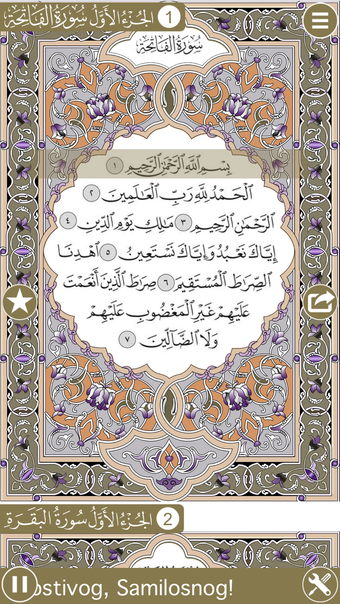 الجزء الأول سورة الفاتحة 1
سُورَةُ الفَاتِحَةِ
بِسْمِ ٱللَّهِ ٱلرَّحْمَٰنِ ٱلرَّحِيمِ ١
ٱلْحَمْدُ لِلَّهِ رَبِّ ٱلْعَٰلَمِينَ ٢
ٱلرَّحْمَٰنِ ٱلرَّحِيمِ ٣ مَٰلِكِ يَوْمِ ٱلدِّينِ ٤
إِيَّاكَ نَعْبُدُ وَإِيَّاكَ نَسْتَعِينُ ٥ ٱهْدِنَا
ٱلصِّرَٰطَ ٱلْمُسْتَقِيمَ ٦ صِرَٰطَ ٱلَّذِينَ أَنْعَمْتَ
عَلَيْهِمْ غَيْرِ ٱلْمَغْضُوبِ عَلَيْهِمْ
وَلَا ٱلضَّآلِّينَ ٧
الجزء الأول سورة البقرة 2
ostivog, Samilosnog!